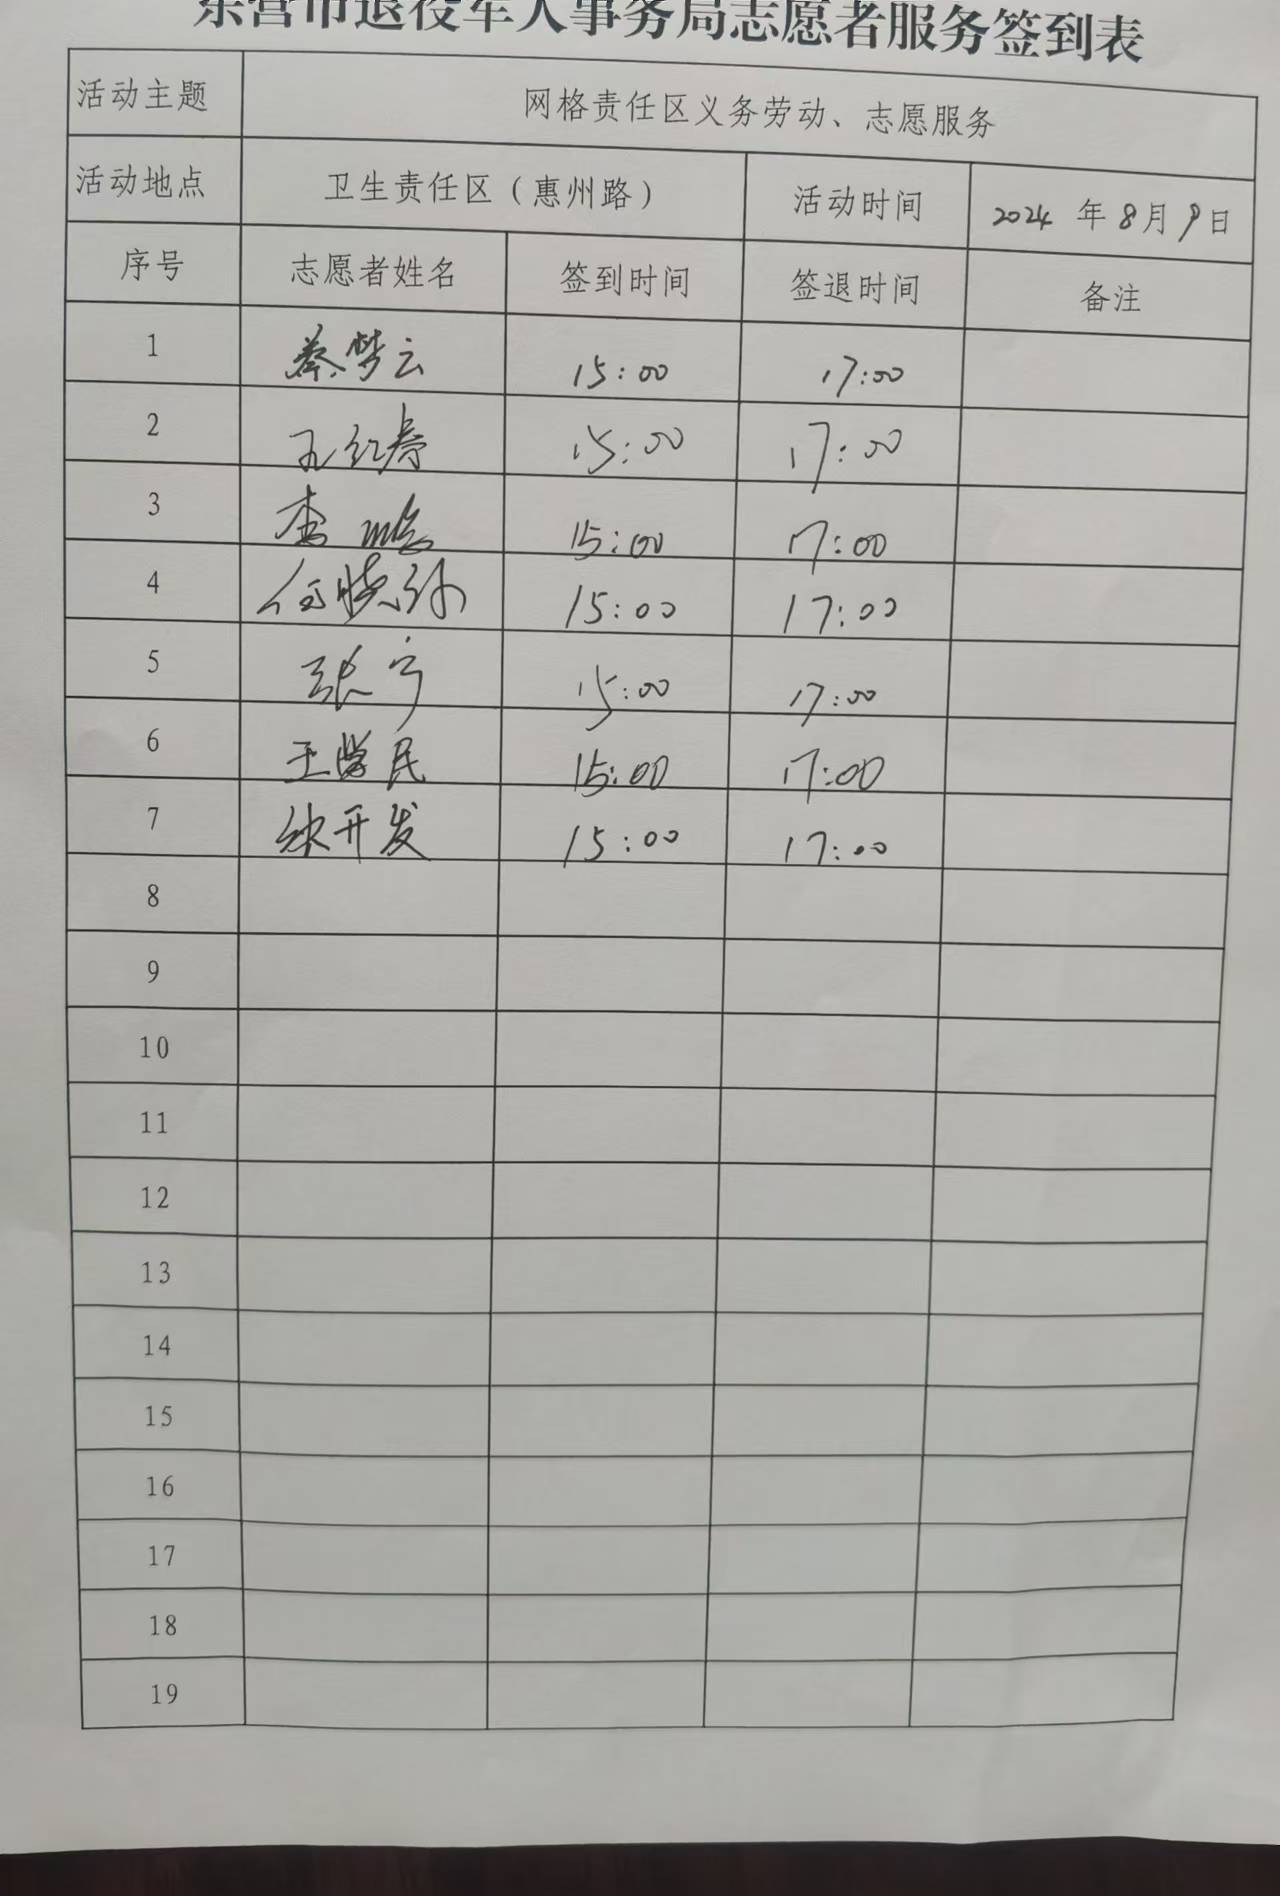 东营市退役军人事务局志愿者服务签到表
活动主题 网格责任区义务劳动、志愿服务
活动地点 卫生责任区(惠州路) 活动时间 2024 年 8月 9日
序号 志愿者姓名 签到时间 签退时间 备注
1 蔡梦云 15:00 17:00
2 15:00 17:00
3 李 15:00 17:00
4 何晓 15:00 17:00
5 张宁 15:00 17:00
6 王学民 15:00 17:00
7 开发 15:00 17:00
8
9
10
11
12
13
14
15
16
17
18
19